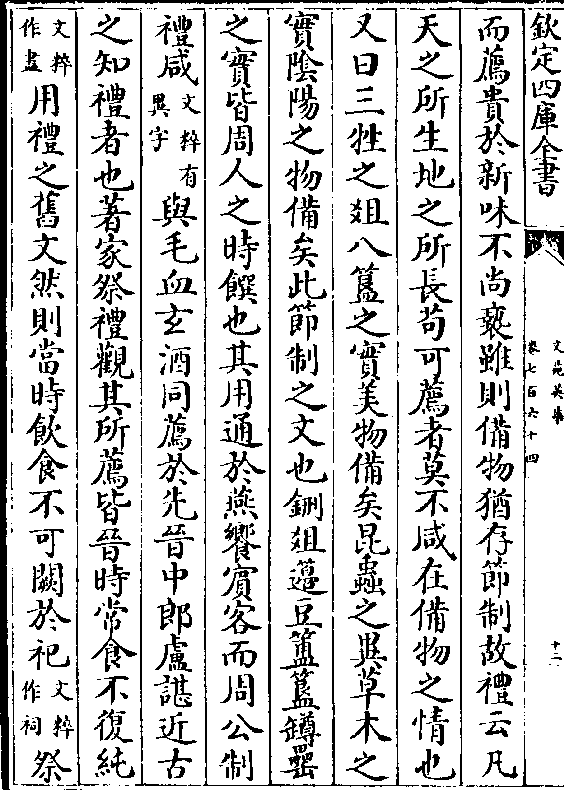 欽定四庫全書
文苑英華
卷七百六十四
十二
而薦貴於新味不尚褻雖則備物猶存節制故禮云凡
天之所生地之所長苟可薦者莫不咸在備物之情也
又曰三牲之俎八簋之實美物備矣昆蟲之異草木之
實陰陽之物備矣此節制之文也鉶俎籩豆簠簋罇罍
之實皆周人之時饌也其用通於燕饗賓客而周公制
禮咸文粹有異字與毛血玄酒同薦於先晉中郎盧諶近古
之知禮者也著家祭禮觀其所薦皆晉時常食不復純
文粹作盡用禮之舊文然則當時飲食不可闕於祀文粹作祠祭